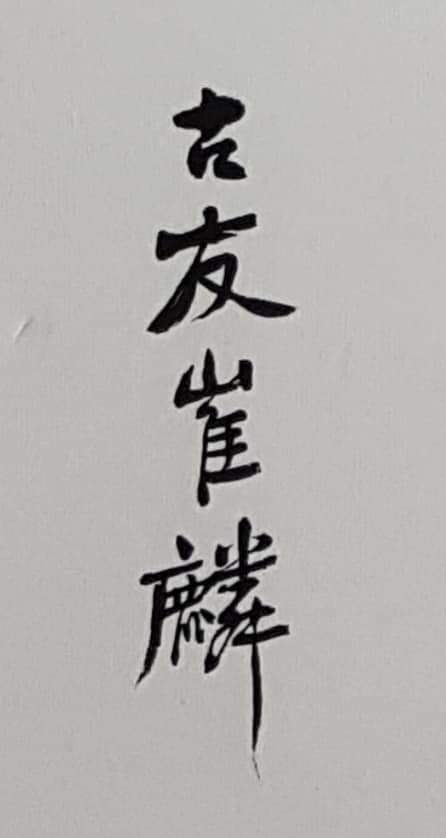 古友崔麟